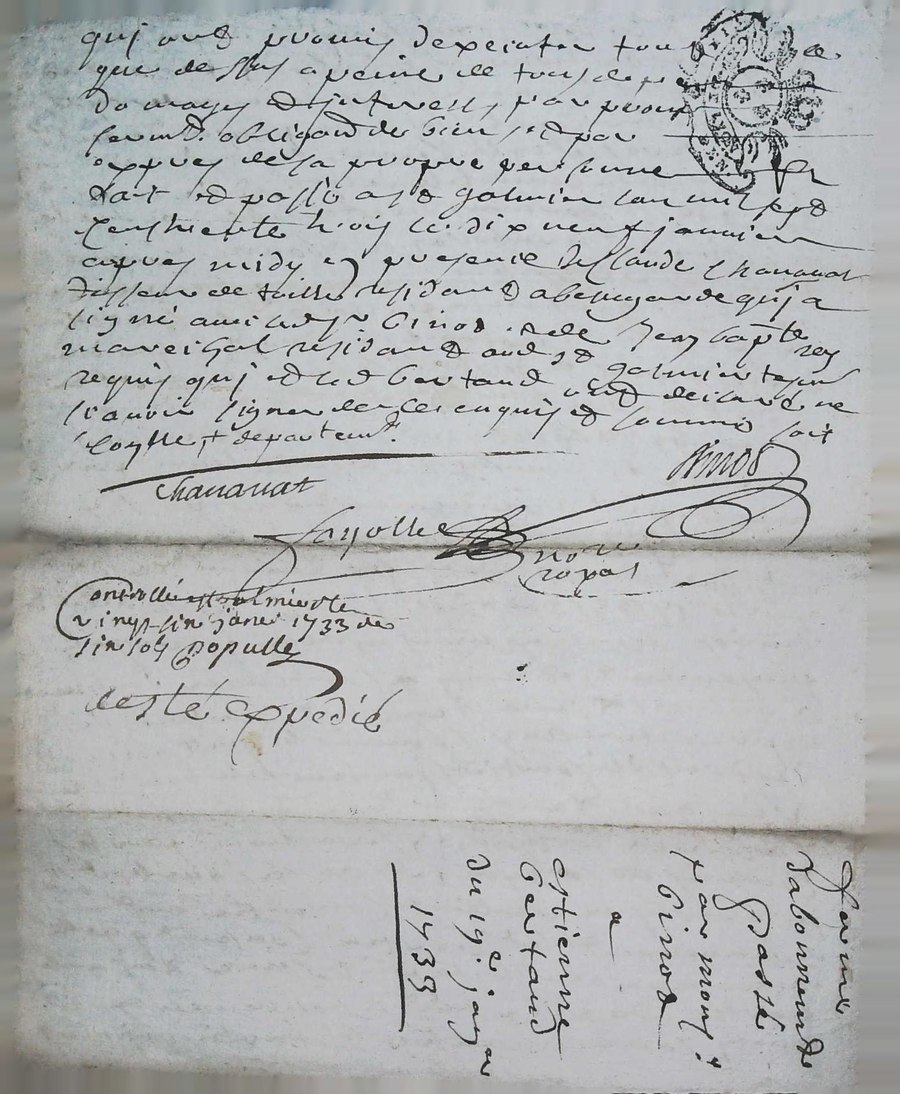 qui ont promis dexecuter tout ce
que dessus a peine de tous depens
domages et interests par promesse
serment obligaon de biens et par
expres de sa propre personne
fait et passé a st galmier lan mil sept
cens trente trois le dix neuf janvier
apres midy en presence de Claude Chanavat
tisseur de toille residant a qui a
signé avec ledt sr binod et de Jean baptte rey
mareschal residant audt st galmier tesmoins
requis qui et ledt bertaud ont declaré ne
scavoir signer de ce enquis et sommés soit
departemt.
Chanavat
binod
fayolle
nore
royal
Controllé a st galmier le
vingt cin janv 1733 reçu
cin sols populle
a esté expedié
ferme
dabonnemt de
passé
par monsr
binod
a
estienne
bertaud
du 19e janvr
1733